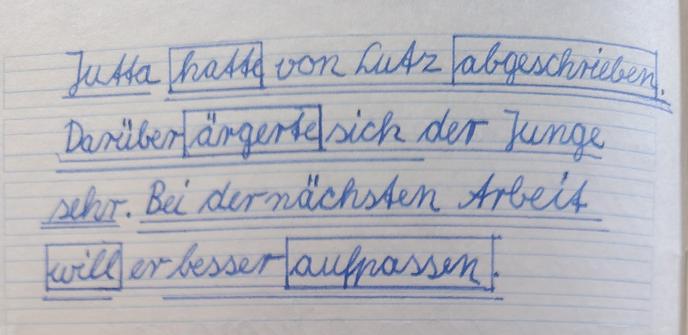 Jutta hatte von Lutz abgeschrieben.
Darüber ärgerte sich der Junge
sehr. Bei der nächsten Arbeit
will er besser aufpassen.